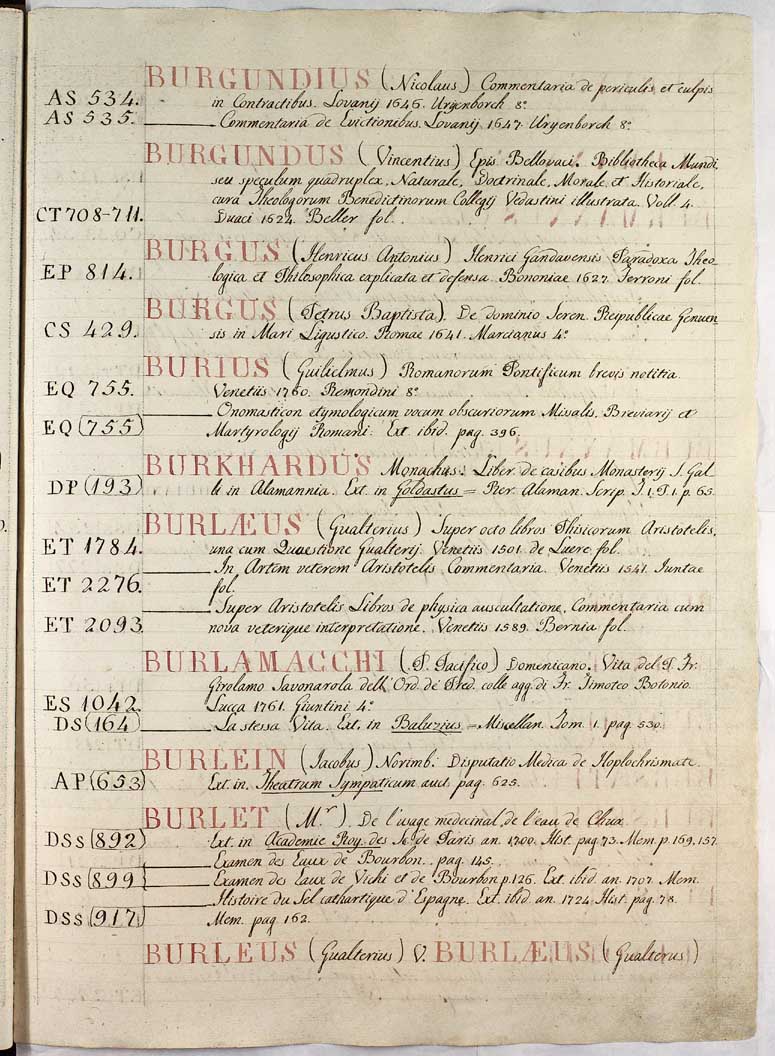 BURGUNDIUS (Nicolaus) Commentaria de periculis et culpis
AS 534. in Contractibus. Lovanij 1646. Urgenborch 8º
AS 535. Commentaria de Evictionibus. Lovanij. 1647. Urgenborch 8º
BURGUNDUS (Vincentius) Epis. Bellovaci. Bibliotheca Mundi,
seu speculum quadruplex, Naturale, Doctrinale, Morale, et Historiale,
cura Theologorum Benedictinorum Collegij Vedastini illustrata. Voll. 4.
CT 708-711. Duaci 1624. Beller fol.
BURGUS (Henricus Antonius) Henrici Gandavensis Paradoxa Theo-
EP 814. logica et Philosophica explicata et defensa. Bononiae 1627. Ferroni fol.
BURGUS (Petrus Baptista). De dominio Seren. Reipublicae Genuen-
CS 429. sis in Mari Ligustico. Romae 1641. Marcianus 4º
BURIUS (Guilielmus) Romanorum Pontificum brevis notitia.
EQ 755. Venetiis 1760. Remondini 8º
Onomasticon etymologicum vocum obscuriorum Missalis, Breviarij et
EQ (755) Martyrologij Romani. Ext. ibid. pag. 396.
BURKHARDUS Monachus. Liber de casibus Monasterij S. Gal-
DP (193) li in Alamannia. Ext. in Goldastus = Rer. Alaman. Scrip. T. 1. P. 1. p. 65.
BURLÆUS (Gualterius) Super octo libros Phisicorum Aristotelis,
ET 1784. una cum Quaestione Gualterij. Venetiis 1501. de Luere fol.
In Artem veterem Aristotelis Commentaria. Venetiis 1541. Juntae
ET 2276. fol.
Super Aristotelis Libros de physica auscultatione, Commentaria cum
ET 2093. nova veterique interpretatione. Venetiis 1589. Bernia fol.
BURLAMACCHI (P. Pacifico) Domenicano. Vita del P. Fr.
Girolamo Savonarola dell'Ord. de' Pred. colle agg. di Fr. Timoteo Botonio.
ES 1042. Lucca 1761. Giuntini 4º
DS (164) La stessa Vita. Ext. in Baluzius = Miscellan. Tom. 1. pag. 530.
BURLEIN (Jacobus) Norimb. Disputatio Medica de Hoplochrismate.
AP (653) Ext. in. Theatrum Sympaticum auct. pag. 625.
BURLET (M.r). De l'usage medecinal de l'eau de Chux.
DSs (892) Ext. in Academie Roy. des Sc. de Paris an. 1700. Hist. pag. 73. Mem. p. 169. 157.
Examen des Eaux de Bourbon. pag. 145.
DSs (899) Examen des Eaux de Vichi et de Bourbon p. 126. Ext. ibid. an. 1707. Mem.
Histoire du Sel cathartique d'Espagne. Ext. ibid. an. 1724. Hist. pag. 78.
DSs (917) Mem. pag 162.
BURLEUS (Gualterius) V. BURLÆUS (Gualterus)